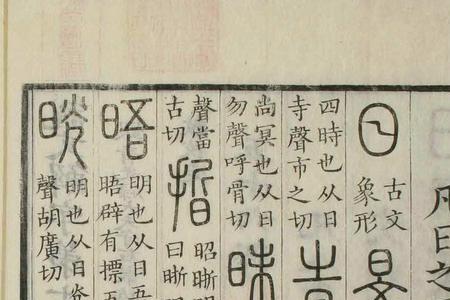 凡日之
日
古文
象形
四時也从日
寺聲市之切
尚冥也从日
勿聲呼骨切
昧
聲當
古切
晢
昭晣明
曰晣
晤
明也从日吾
晤辟有摽
晄
明也从日
聲胡廣切